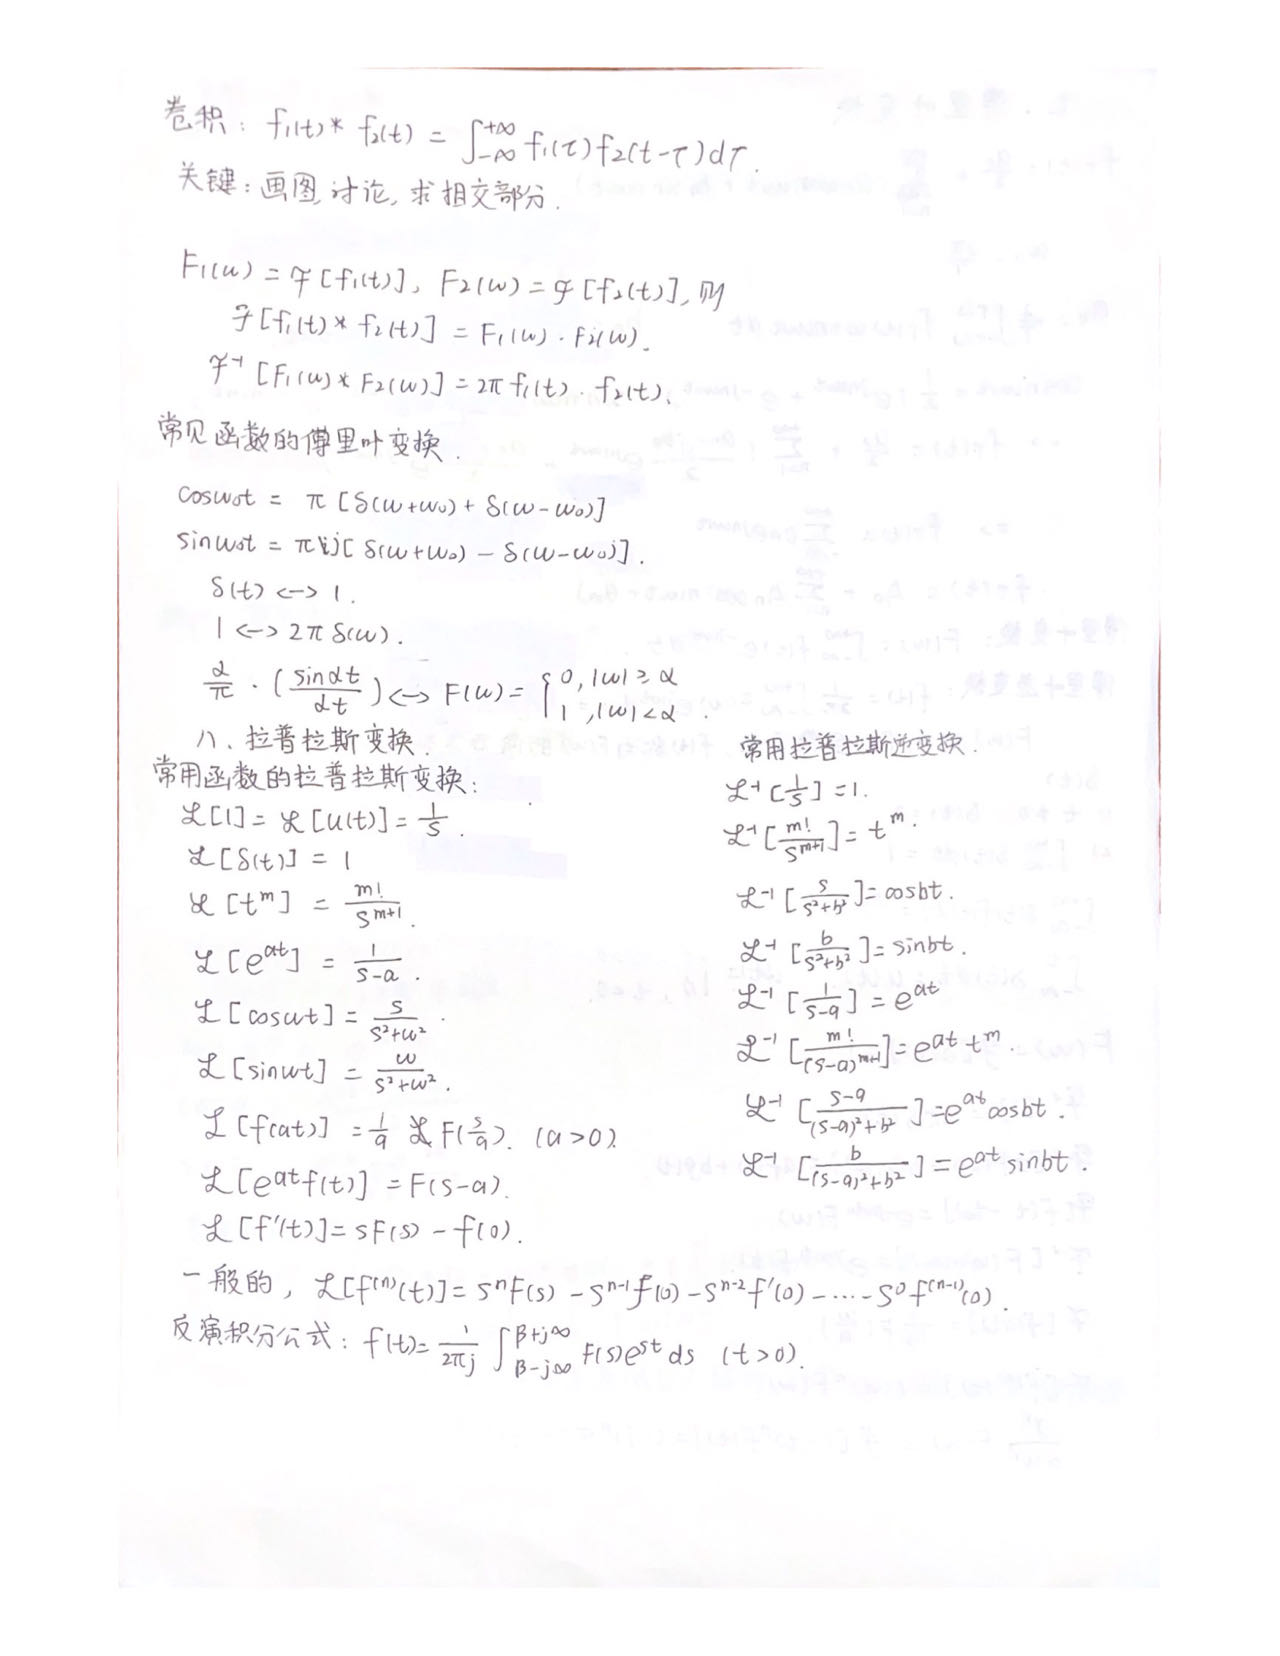 卷积: f₁(t)* f₂(t) = ∫₋∞^{+∞} f₁(τ) f₂(t-τ)dτ.
关键:画图,讨论,求相交部分.
F₁(ω) = ℱ[f₁(t)], F₂(ω) = ℱ[f₂(t)], 则
ℱ[f₁(t)* f₂(t)] = F₁(ω)·F₂(ω).
ℱ⁻¹[F₁(ω)* F₂(ω)] = 2π f₁(t)·f₂(t).
常见函数的傅里叶变换.
cosω₀t = π[δ(ω+ω₀)+δ(ω-ω₀)]
sinω₀t = πj[δ(ω+ω₀) - δ(ω-ω₀)].
δ(t) <-> 1.
1 <-> 2πδ(ω).
α/π·(sinαt/αt) <-> F(ω) = { 0, |ω| ≥ α
1, |ω| < α.
八、拉普拉斯变换.
常用函数的拉普拉斯变换:
ℒ[1] = ℒ[u(t)] = 1/s.
ℒ[δ(t)] = 1
ℒ[t^m] = m!/s^{m+1}.
ℒ[e^{at}] = 1/(s-a).
ℒ[cosωt] = s/(s²+ω²)
ℒ[sinωt] = ω/(s²+ω²).
ℒ[f(at)] = 1/a F(s/a). (a>0).
ℒ[e^{at}f(t)] = F(s-a).
ℒ[f'(t)] = sF(s) - f(0).
常用拉普拉斯逆变换.
ℒ⁻¹[1/s] = 1.
ℒ⁻¹[m!/s^{m+1}] = t^m.
ℒ⁻¹[s/(s²+b²)] = cosbt.
ℒ⁻¹[b/(s²+b²)] = sinbt.
ℒ⁻¹[1/(s-a)] = e^{at}
ℒ⁻¹[m!/(s-a)^{m+1}] = e^{at} t^m.
ℒ⁻¹[(s-a)/((s-a)²+b²)] = e^{at}cosbt.
ℒ⁻¹[b/((s-a)²+b²)] = e^{at} sinbt.
一般的, ℒ[f^{(n)}(t)] = s^n F(s) - s^{n-1} f(0) - s^{n-2} f'(0) - ···· - s⁰ f^{(n-1)}(0).
反演积分公式: f(t) = 1/(2πj) ∫_{β-j∞}^{β+j∞} F(s)e^{st} ds (t>0).